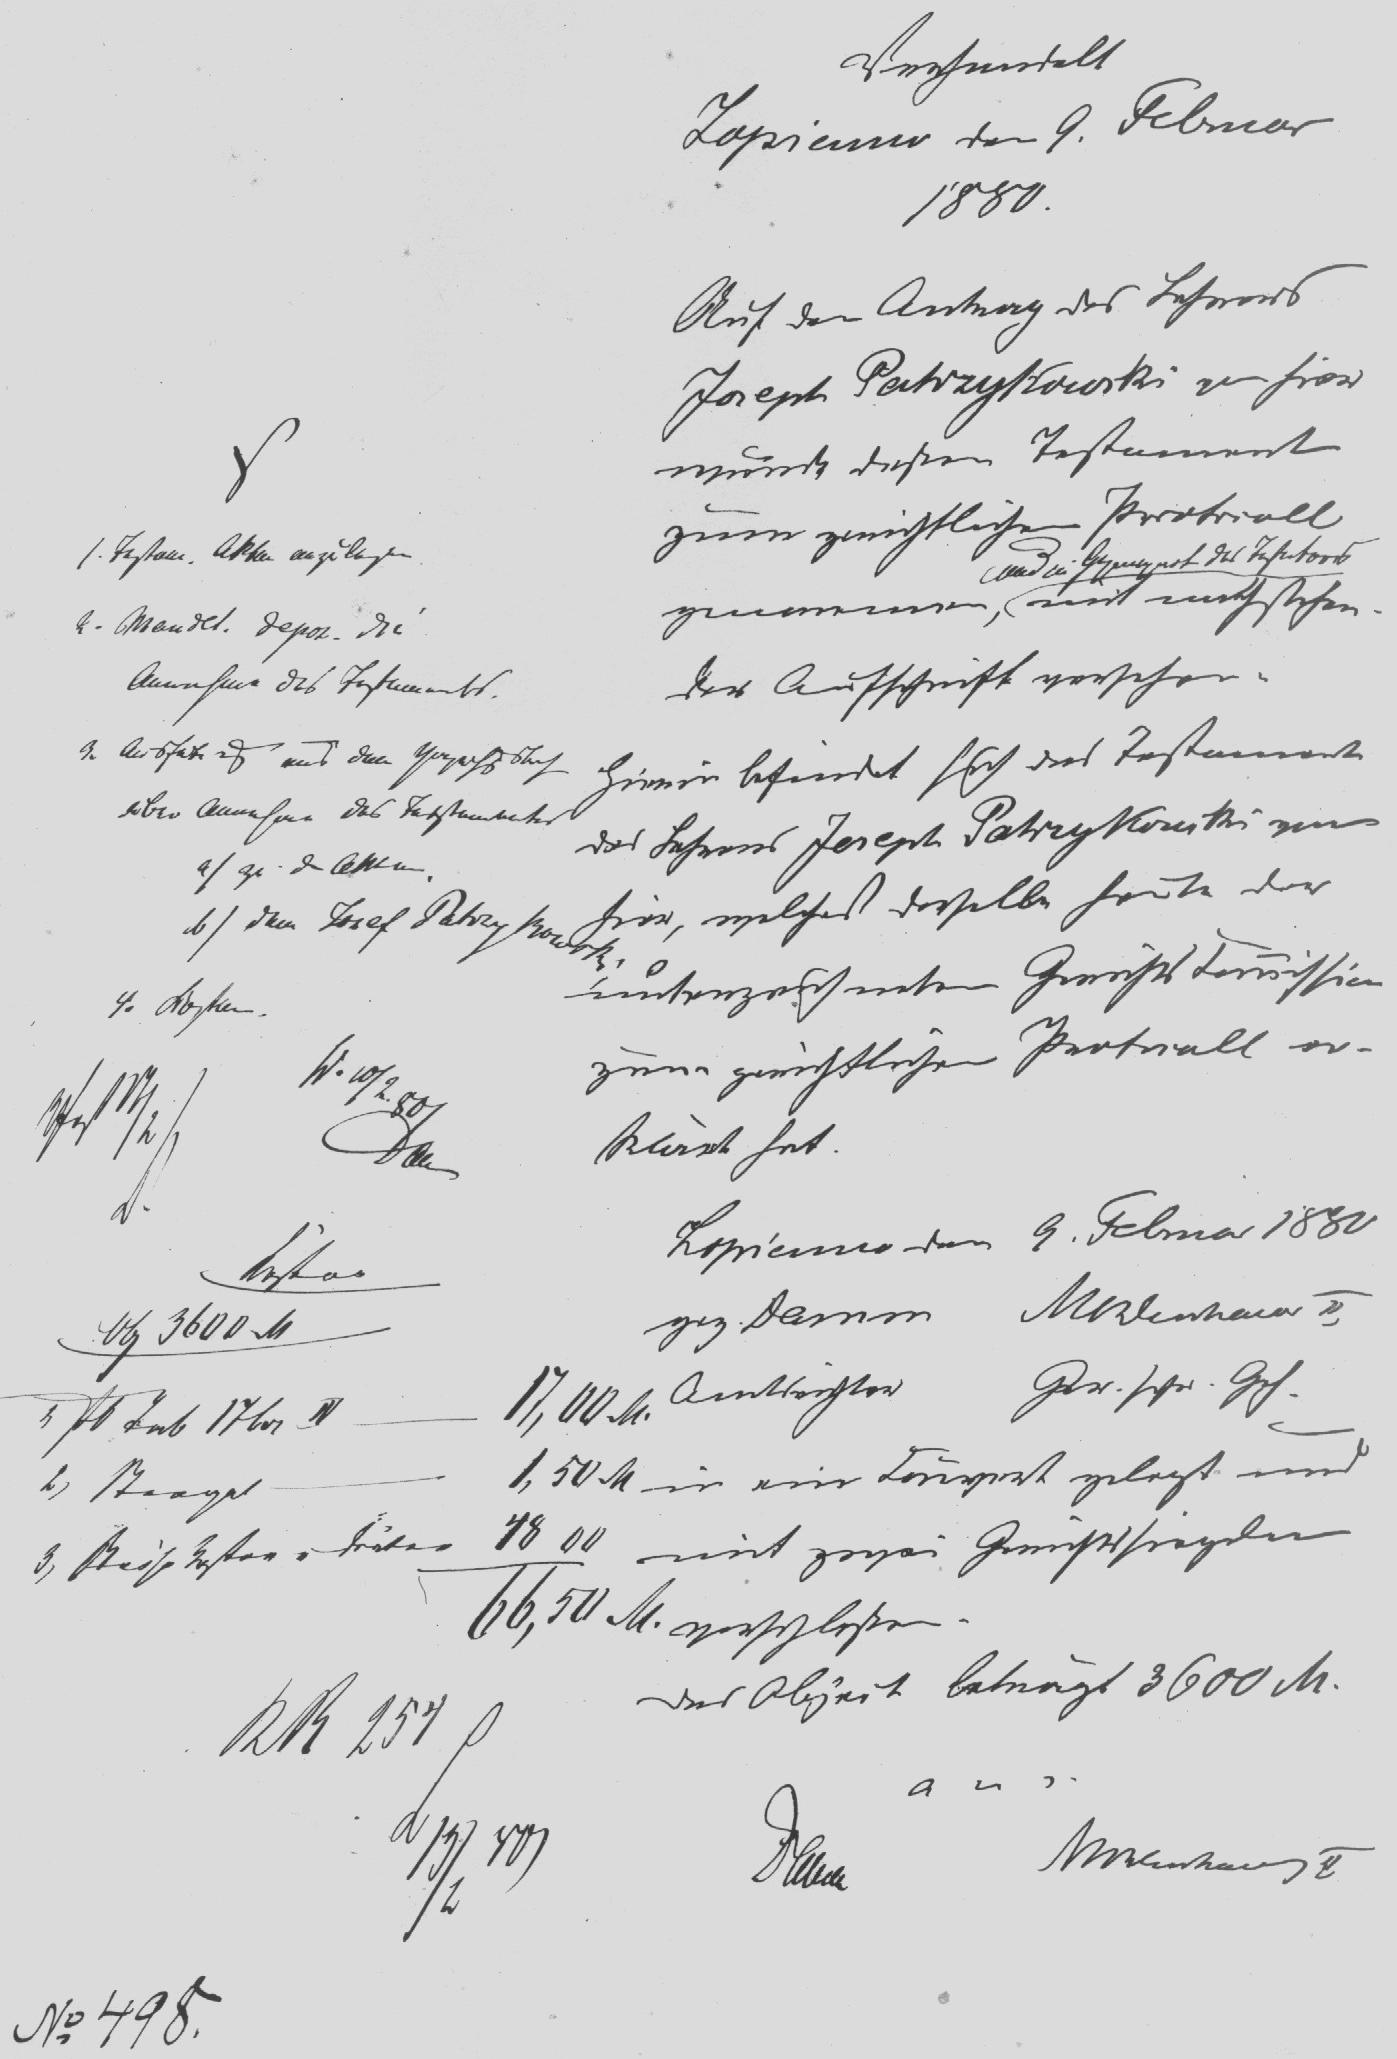 Verhandelt
Lopienno den 9. Februar
1880.
Auf den Antrag des Lehrers
Joseph Patrzykowski von hier
wurde dessen Testament
zum gerichtlichen Protocoll
genommen, und in Gegenwart des Testators mit nachstehen-
der Aufschrift versehen:
Hierin befindet sich das Testament
des Lehrers Joseph Patrzykowski von
hier, welches derselbe heute der
unterzeichneten Gerichts Com̅ission
zum gerichtlichen Protocoll er-
klärt hat.
Lopienno den 9. Februar 1880
gez. Damm Moldenhauer II,
Amtsrichter Ger. schr. Geh.
in ein Couvert gelegt und
mit zwei Gerichtssiegeln
verschlossen.
Das Object beträgt 3600 M.
a. u. s.
Damm Moldenhauer II
1. Testam. Akten anzulegen
2. Mandat. depos. die
Annahme des Testaments.
3. aus dem
über Annahme des Testamentes
a/ zu den Akten.
b/ dem Josef Patrzykowski.
4. Kosten.
W. 10/2 80/
Dam
Kosten
Obj 3600 M
1, Tab 17,00 M.
2, Stempel 1,50 M
3, 48 00
66,50 M.
KR 254
13/2 80
No 498.